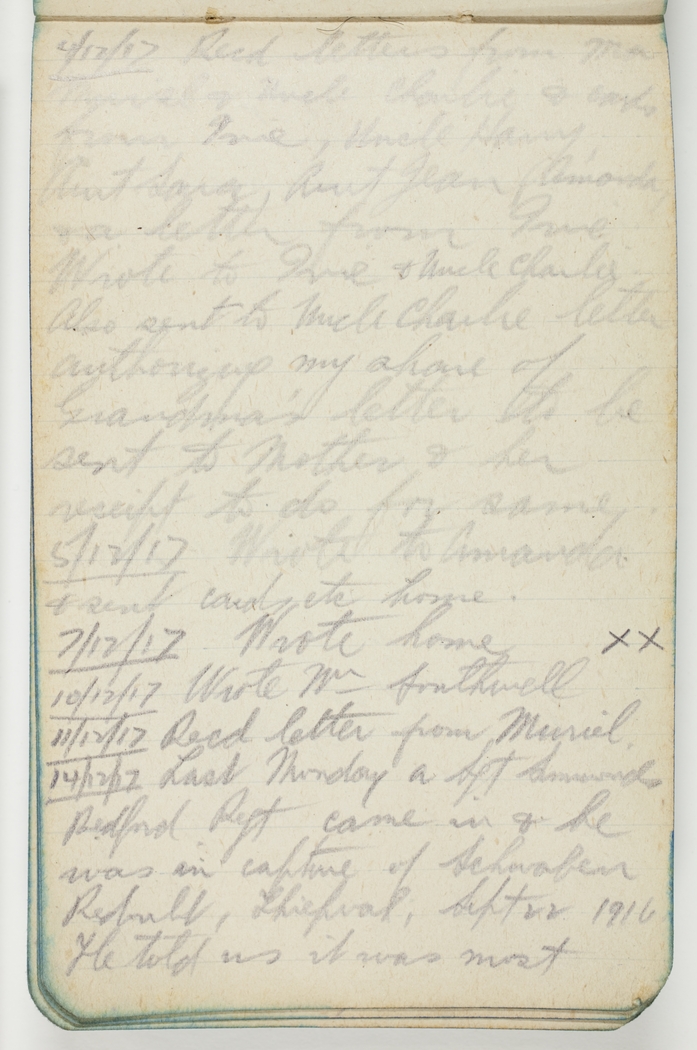 4/12/17 Recd letters from Ma
Muriel & Uncle Charlie & cards
from Ivie, Uncle Harry
Aunt Sara, Aunt Jean, Amanda,
& a letter from Ivie
Wrote to Ivie & Uncle Charlie.
Also sent to Uncle Charlie letter
authorizing my share of
Grandma's letter to be
sent to Mother & her
receipt to do for same.
5/12/17 Wrote to Amanda
& sent cards etc home.
7/12/17 Wrote home XX
10/12/17 Wrote Mr Southwell
11/12/17 Recd letter from Muriel.
14/12/17 Last Monday a Sgt Simmonds
Bedford Regt came in & he
was in capture of Schwaben
Redoubt, Thiepval, Sept 1916
He told us it was most